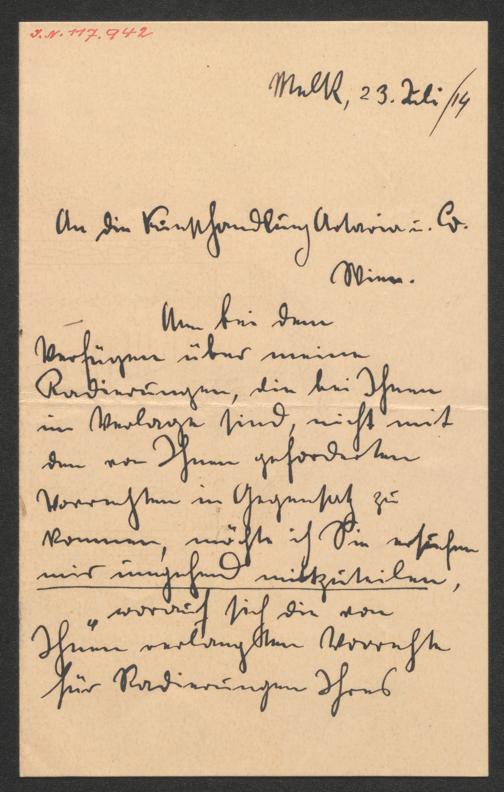 I.N. 117.942
Melk, 23. Juli/14
An die Kunsthandlung Artaria u. Co.
Wien.
Um bei dem
Verfügen über meine
Radierungen, die bei Ihnen
im Verlage sind, nicht mit
den von Ihnen geforderten
Vorrechten in Gegensatz zu
kommen, möchte ich Sie ersuchen
mir umgehend mitzuteilen,
worauf sich die von
Ihnen verlangten Vorrechte
für Radierungen Ihres